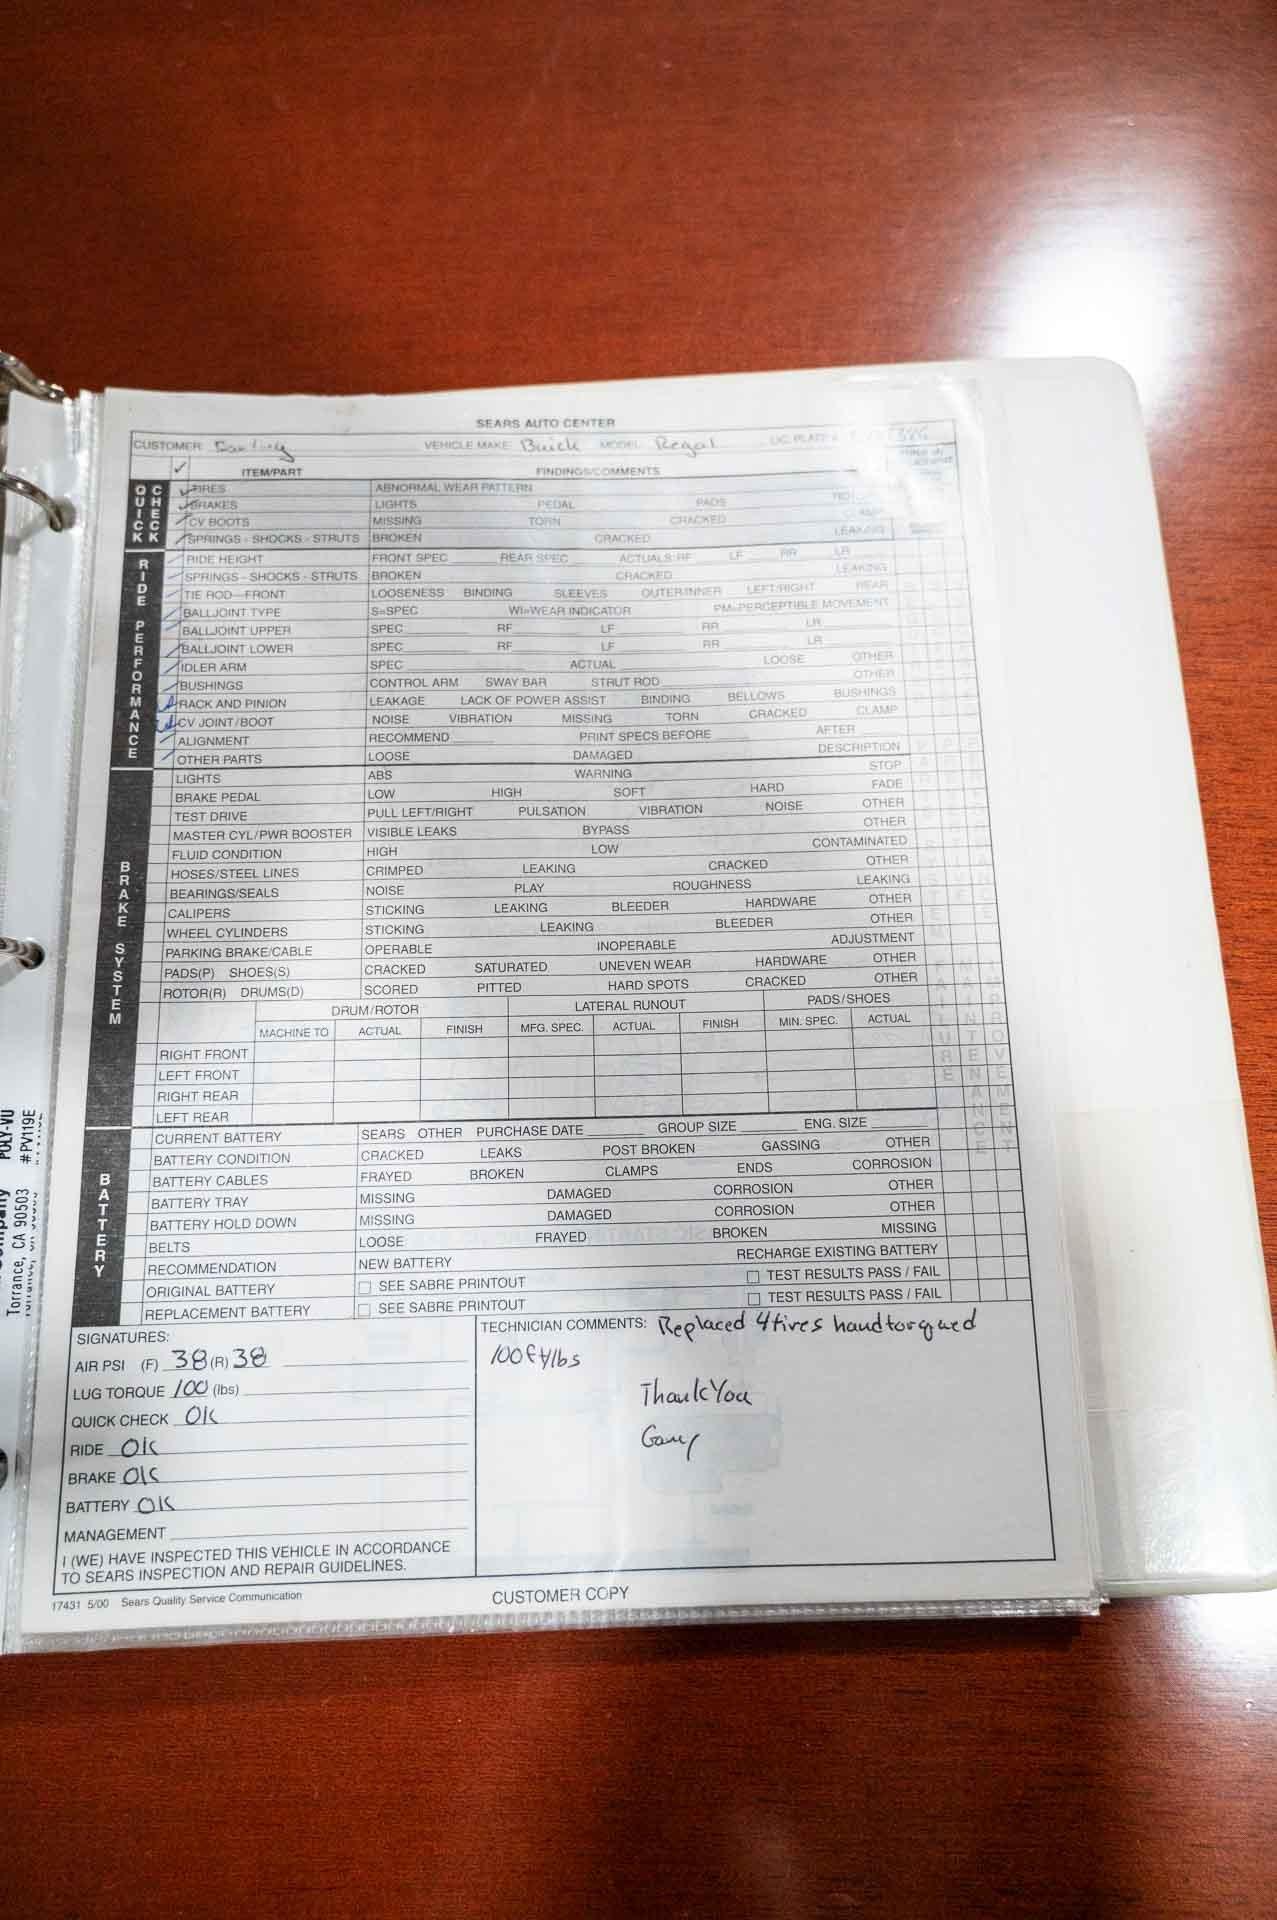 SEARS AUTO CENTER
CUSTOMER VEHICLE MAKE Buick MODEL Regal LIC. PLATE#
✓ ITEM/PART FINDINGS/COMMENTS
QUICK CHECK
✓ TIRES ABNORMAL WEAR PATTERN
✓ BRAKES LIGHTS PEDAL PADS
✓ CV BOOTS MISSING TORN CRACKED CLAMP
✓ SPRINGS - SHOCKS - STRUTS BROKEN CRACKED LEAKING
RIDE PERFORMANCE
RIDE HEIGHT FRONT SPEC REAR SPEC ACTUALS: RF LF RR LR
SPRINGS - SHOCKS - STRUTS BROKEN CRACKED LEAKING
TIE ROD—FRONT LOOSENESS BINDING SLEEVES OUTER/INNER LEFT/RIGHT REAR
BALLJOINT TYPE S=SPEC WI=WEAR INDICATOR PM=PERCEPTIBLE MOVEMENT
BALLJOINT UPPER SPEC RF LF RR LR
BALLJOINT LOWER SPEC RF LF RR LR
IDLER ARM SPEC ACTUAL LOOSE OTHER
BUSHINGS CONTROL ARM SWAY BAR STRUT ROD OTHER
RACK AND PINION LEAKAGE LACK OF POWER ASSIST BINDING BELLOWS BUSHINGS
CV JOINT/BOOT NOISE VIBRATION MISSING TORN CRACKED CLAMP
ALIGNMENT RECOMMEND PRINT SPECS BEFORE AFTER
OTHER PARTS LOOSE DAMAGED DESCRIPTION
BRAKE SYSTEM
LIGHTS ABS WARNING STOP
BRAKE PEDAL LOW HIGH SOFT HARD FADE
TEST DRIVE PULL LEFT/RIGHT PULSATION VIBRATION NOISE OTHER
MASTER CYL/PWR BOOSTER VISIBLE LEAKS BYPASS OTHER
FLUID CONDITION HIGH LOW CONTAMINATED
HOSES/STEEL LINES CRIMPED LEAKING CRACKED OTHER
BEARINGS/SEALS NOISE PLAY ROUGHNESS LEAKING
CALIPERS STICKING LEAKING BLEEDER HARDWARE OTHER
WHEEL CYLINDERS STICKING LEAKING BLEEDER OTHER
PARKING BRAKE/CABLE OPERABLE INOPERABLE ADJUSTMENT
PADS(P) SHOES(S) CRACKED SATURATED UNEVEN WEAR HARDWARE OTHER
ROTOR(R) DRUMS(D) SCORED PITTED HARD SPOTS CRACKED OTHER
DRUM/ROTOR LATERAL RUNOUT PADS/SHOES
MACHINE TO ACTUAL FINISH MFG. SPEC. ACTUAL FINISH MIN. SPEC. ACTUAL
RIGHT FRONT
LEFT FRONT
RIGHT REAR
LEFT REAR
BATTERY
CURRENT BATTERY SEARS OTHER PURCHASE DATE GROUP SIZE ENG. SIZE
BATTERY CONDITION CRACKED LEAKS POST BROKEN GASSING OTHER
BATTERY CABLES FRAYED BROKEN CLAMPS ENDS CORROSION
BATTERY TRAY MISSING DAMAGED CORROSION OTHER
BATTERY HOLD DOWN MISSING DAMAGED CORROSION OTHER
BELTS LOOSE FRAYED BROKEN MISSING
RECOMMENDATION NEW BATTERY RECHARGE EXISTING BATTERY
ORIGINAL BATTERY SEE SABRE PRINTOUT TEST RESULTS PASS / FAIL
REPLACEMENT BATTERY SEE SABRE PRINTOUT TEST RESULTS PASS / FAIL
SIGNATURES:
AIR PSI (F) 38 (R) 38
LUG TORQUE 100 (lbs)
QUICK CHECK OK
RIDE OK
BRAKE OK
BATTERY OK
MANAGEMENT
I (WE) HAVE INSPECTED THIS VEHICLE IN ACCORDANCE
TO SEARS INSPECTION AND REPAIR GUIDELINES.
TECHNICIAN COMMENTS: Replaced 4 tires hand torqued
100 ft/lbs
Thank You
Gary
17431 5/00 Sears Quality Service Communication
CUSTOMER COPY
POLY-VU
#PV119E
Torrance, CA 90503